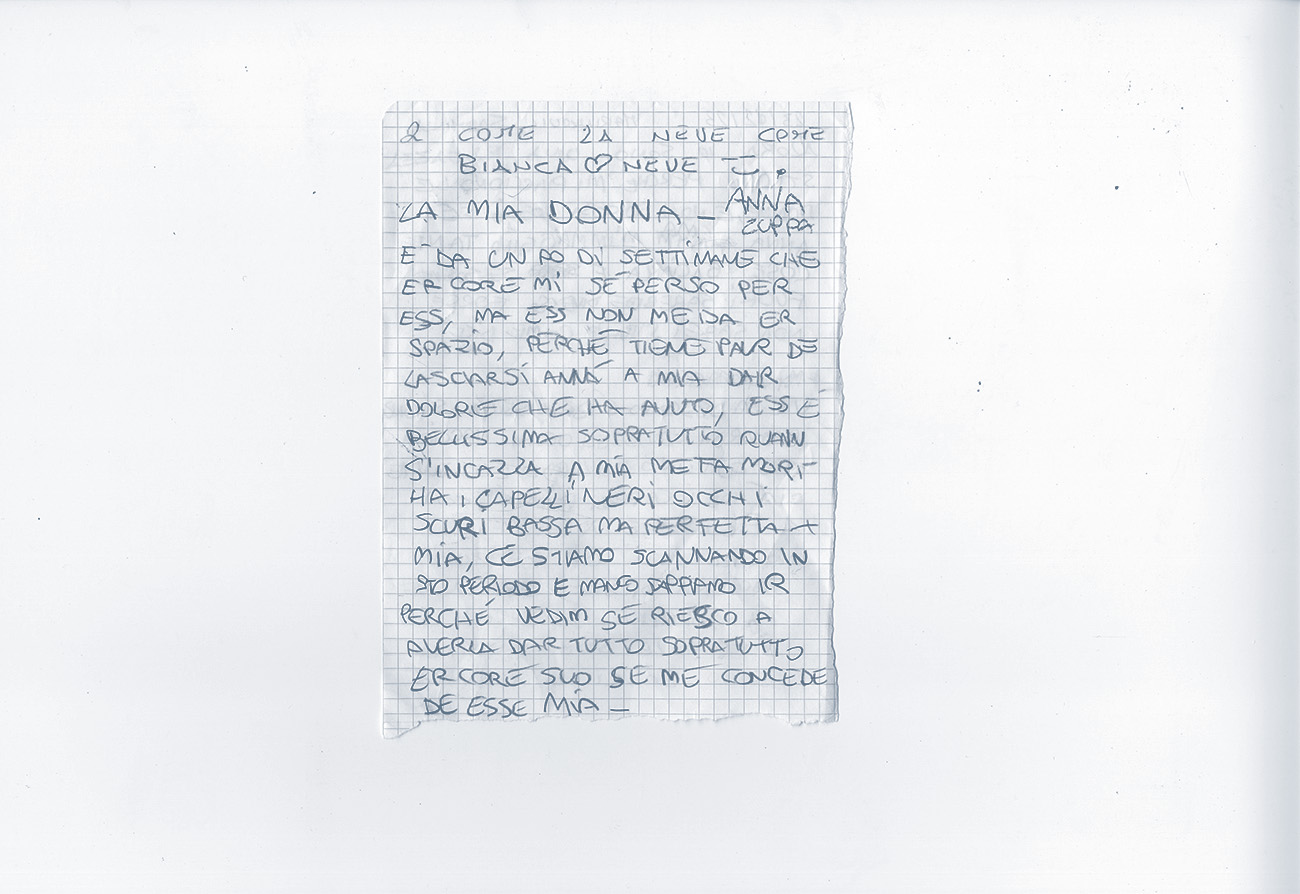 2 COME LA NEVE COME
BIANCA ♡ NEVE
LA MIA DONNA – ANNA
ZUPPA
E' DA UN PO DI SETTIMANE CHE
ER CORE MI SE' PERSO PER
ESS, MA ESS NON ME DA ER
SPAZIO, PERCHÉ TIENE PAUR DE
LASCIARSI ANNÀ A MIA DAR
DOLORE CHE HA AVUTO, ESS É
BELLISSIMA SOPRATUTTO QUANN
S'INCAZZA A MIA ME FA MORI–
HA I CAPELLI NERI OCCHI
SCURI BASSA MA PERFETTA X
MIA, CE STIAMO SCANNANDO IN
STO PERIODO E MANCO SAPPIAMO IR
PERCHÉ VEDIM SE RIESCO A
AVERLA DAR TUTTO SOPRATUTTO
ER CORE SUO SE ME CONCEDE
DE ESSE MIA –